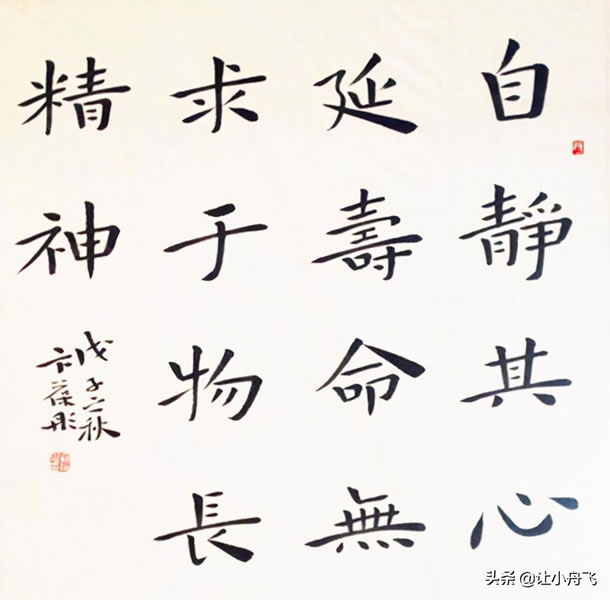 自靜其心
延壽命無
求于物長
精神
戊子之秋
葆彤
头条 @让小舟飞